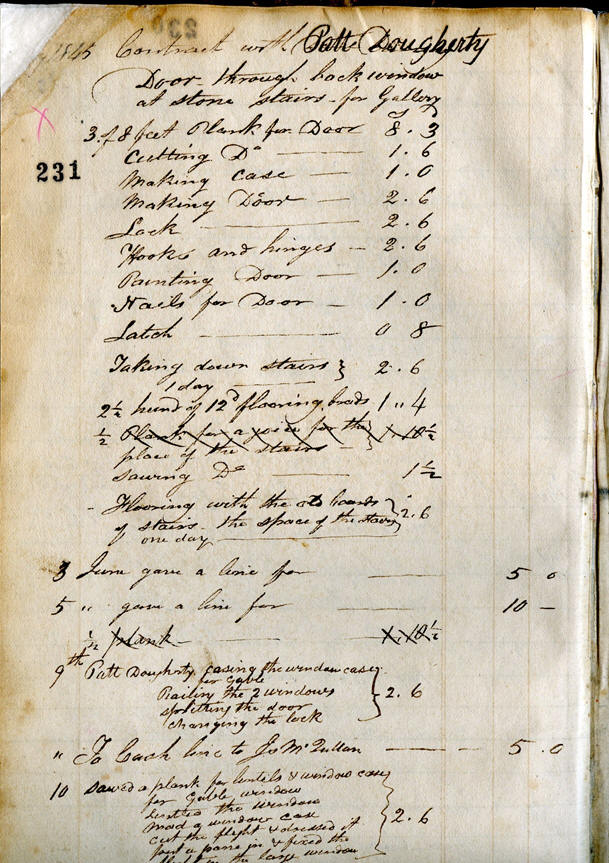 230
1845 Contract with Patt Dougherty
Door through back window
at stone stairs - for Gallery
231
3 of 8 feet Plank for Door 8 . 3
Cutting Do — 1 . 6
Making Case — 1 . 0
Making Door — 2 . 6
Lock — 2 . 6
Hooks and hinges — 2 . 6
Painting Door — 1 . 0
Nails for Door — 1 . 0
Latch — 0 8
Taking down stairs } 2 . 6
1 day —
2½ hund of 12d flooring brads 1 " 4
½ Plank for a joice for the } 10½
place of the stairs -
Sawing Do — 1½
- Flooring with the old boards } 2 . 6
of stairs - the space of the stairs
one day —
3 June gave a line for — 5 0
5 " gave a line for — 10 —
½ plank — 10½
9th Patt Dougherty casing the window case
for Gable
Railing the 2 windows } 2 . 6
splitting the door
changing the lock
" To Cash line to Js McQullan — 5 . 0
10 Sawed a plank for lintels & window case
for Gable window
Lintled the window
Mad a window case } 2 . 6
cut the flight & dressed it
put a pane in & fixed the
flight in the large window